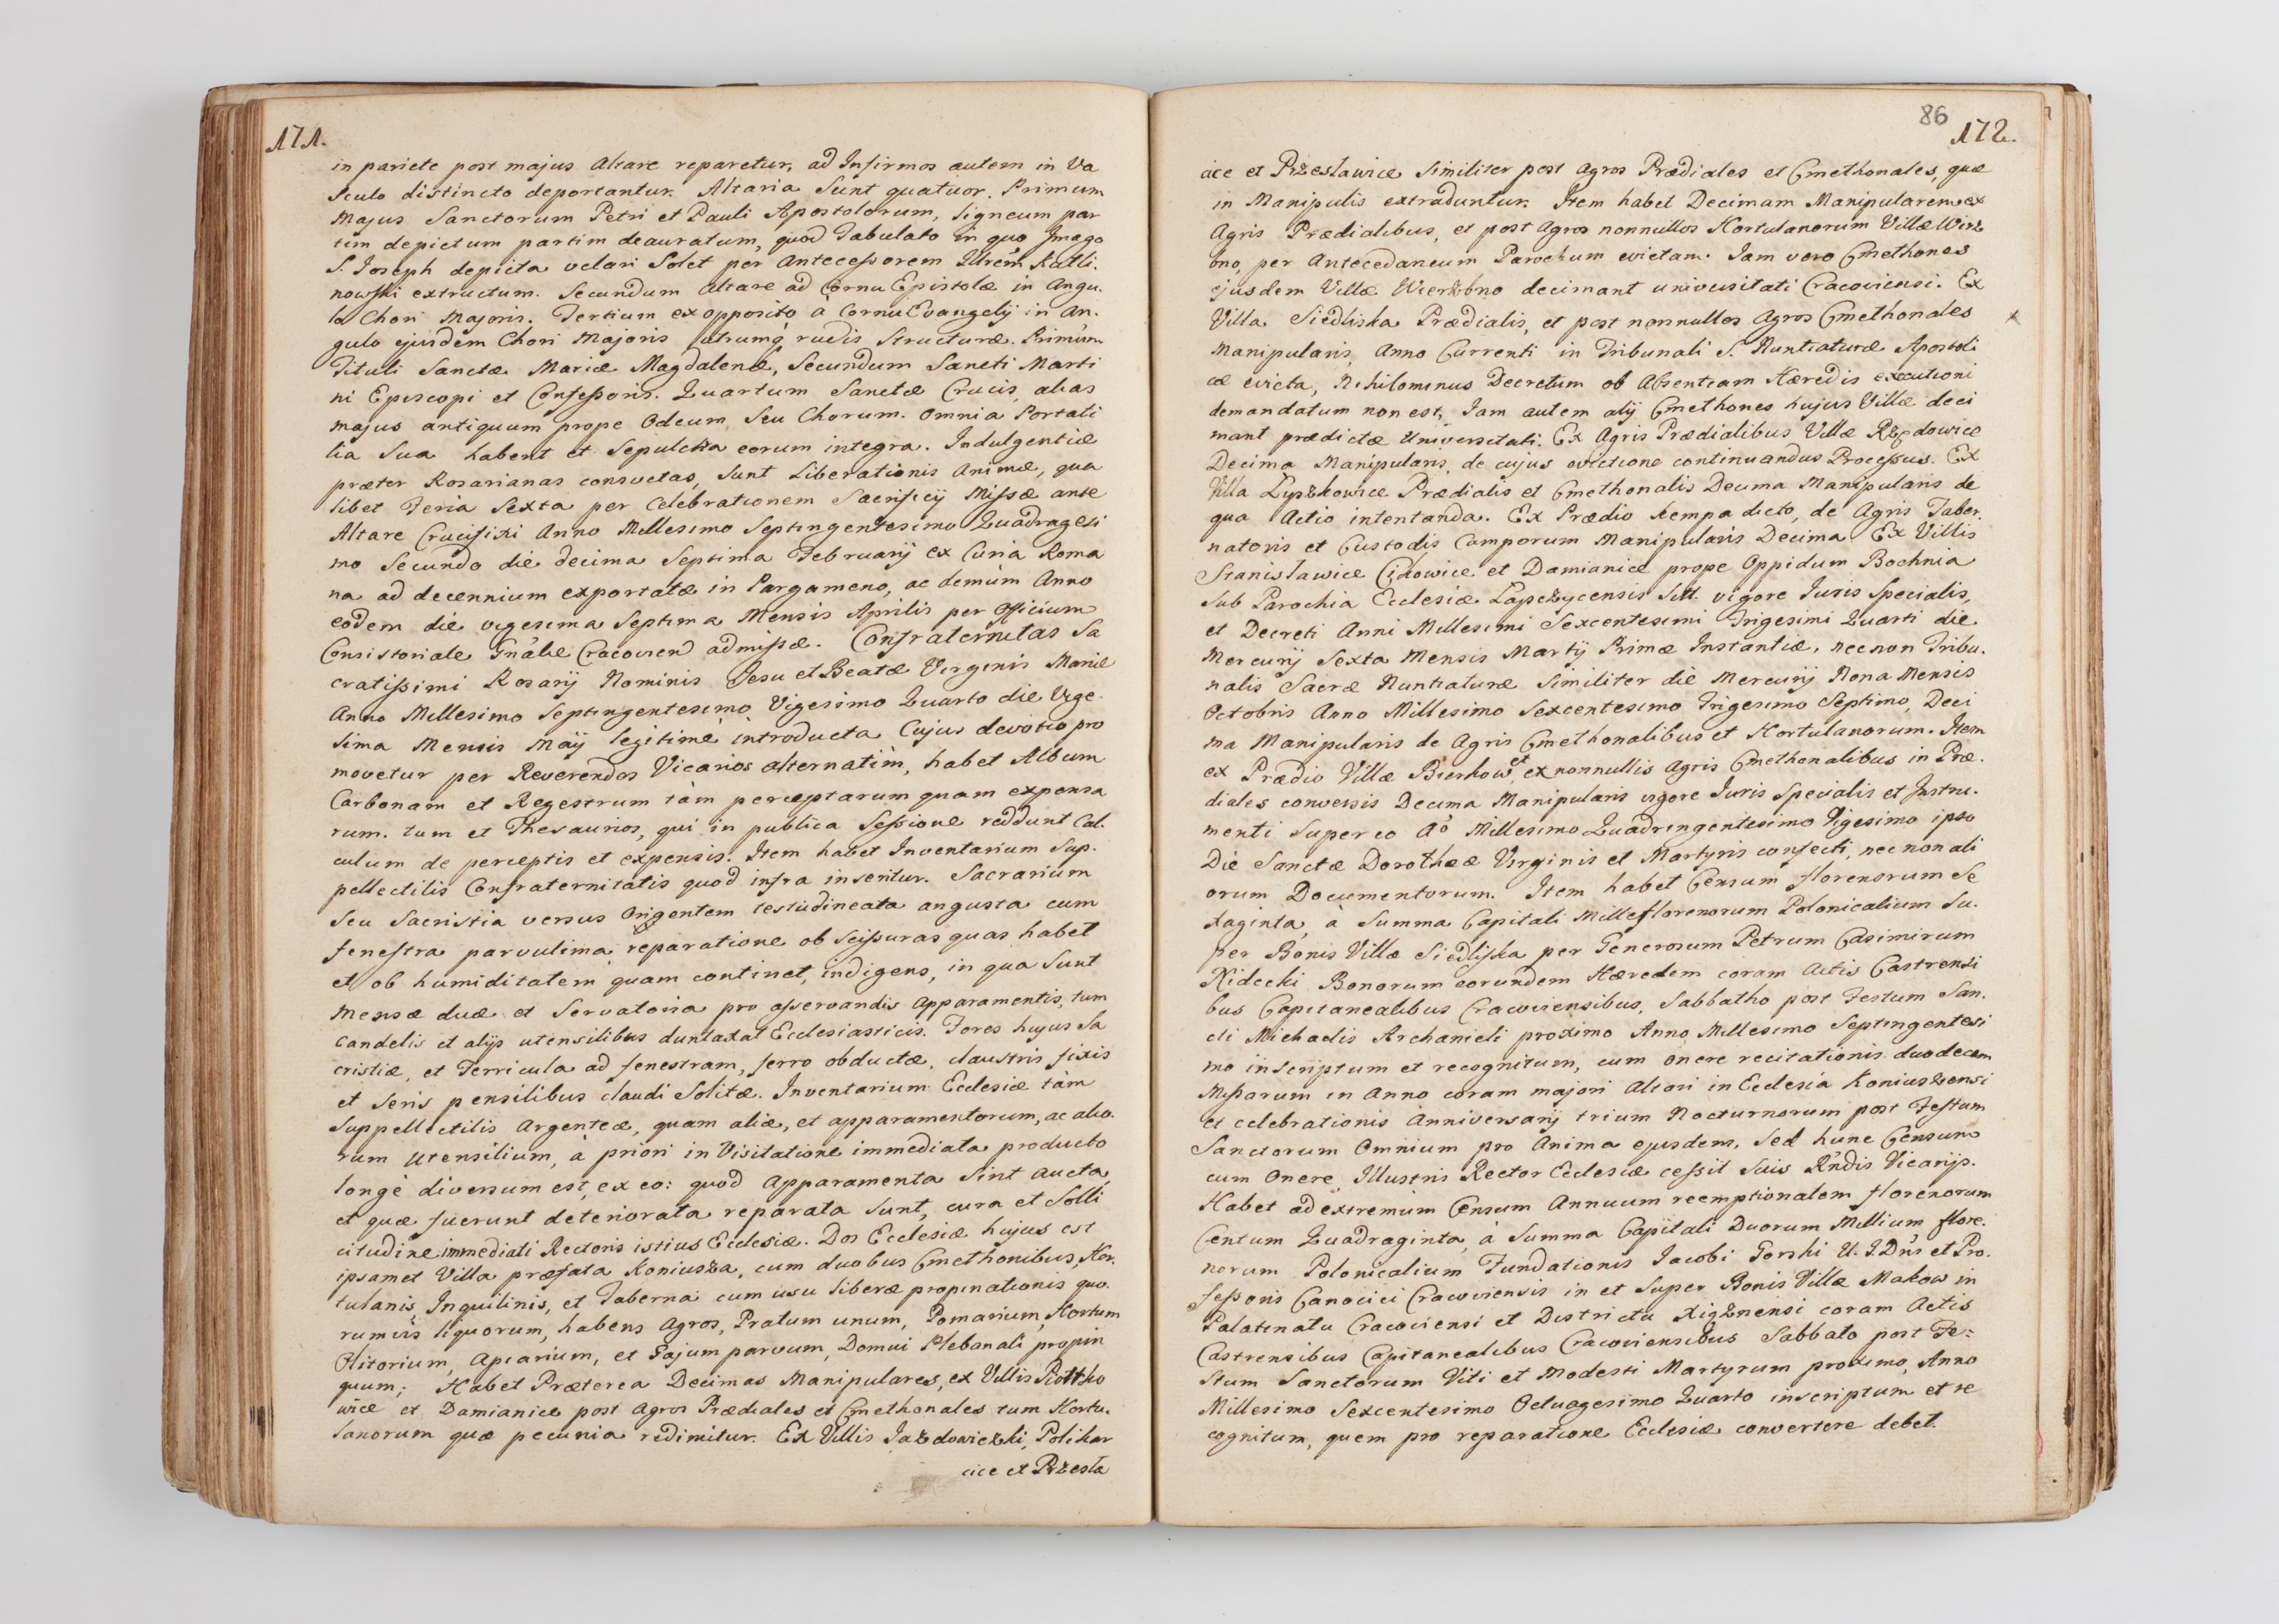 171.
in pariete post majus Altare reparetur, ad Infirmos autem in Va
sculo distincto deportantur. Altaria Sunt quatuor. Primum
Majus Sanctorum Petri et Pauli Apostolorum, ligneum par
tim depictum partim deauratum, quod Tabulato in quo Imago
S. Joseph depicta velari Solet per Antecessorem Illrem Ratli.
nowski extructum. Secundum Altare ad Cornu Epistolæ in Angu.
lo Chori Majoris. Tertium ex opposito à Cornu Evangelij in An.
gulo ejusdem Chori Majoris utrumq́ rudis Structuræ. Primum
Tituli Sanctæ Mariæ Magdalenæ, Secundum Sancti Marti
ni Episcopi et Confessoris. Quartum Sanctæ Crucis, alias
majus antiquum prope Odeum Seu Chorum. Omnia Portati
lia Sua habent et Sepulchra eorum integra. Indulgentiæ
præter Rosarianas consvetas, Sunt Liberationis Animæ, qua
libet Feria Sexta per Celebrationem Sacrificij Missæ ante
Altare Crucifixi Anno Millesimo Septingentesimo Quadragesi
mo Secundo die decima Septima Februarij ex Curia Roma
na ad decennium exportatæ in Pargameno, ac demùm Anno
eodem die vigesima Septima Mensis Aprilis per Officium
Consistoriale Gnále Cracovien admissæ. Confraternitas Sa
cratissimi Rosarij Nominis Jesu et Beatæ Virginis Mariæ
Anno Millesimo Septingentesimo Vigesimo Quarto die Vige
sima Mensis Maij legitimè introducta Cujus devotio pro
movetur per Reverendos Vicarios alternatim, habet Album
Carbonam et Regestrum tàm perceptarum quam expensa
rum. tum et Thesaurios, qui in publica Sessione reddunt Cal.
culum de perceptis et expensis. Item habet Inventarium Sup.
pellectilis Confraternitatis quod infra inseritur. Sacrarium
Seu Sacristia versus Origentem testudineata angusta cum
fenestra parvulima reparatione ob Scissuras quas habet
et ob humiditatem quam continet, indigens, in qua Sunt
Mensæ duæ et Servatoria pro asservandis Apparamentis, tum
Candelis et alijs utensilibus duntaxat Ecclesiasticis. Fores hujus Sa
cristiæ, et Ferricula ad fenestram, ferro obductæ, claustris fixis
et Seris pensilibus claudi Solitæ. Inventarium Ecclesiæ tàm
Suppellectilis Argenteæ, quam aliæ, et apparamentorum, ac alio.
rum Utensilium, à priori in Visitatione immediata producto
longè diversum est, ex eo: quod Apparamenta Sint aucta,
et quæ fuerunt deteriorata reparata Sunt, cura et Solli
citudine immediati Rectoris istius Ecclesiæ. Dos Ecclesiæ hujus est
ipsamet Villa præfata Koniusza, cum duobus Cmethonibus, Hor.
tulanis, Inquilinis, et Taberna cum usu liberæ propinationis quo.
rumvis liquorum, habens Agros, Pratum unum, Pomarium, Hortum
Olitorium, Apiarium, et Gajum parvum, Domui Plebanali propin
quum; Habet Præterea Decimas Manipulares, ex Villis Piotrko
wice et Damianice post Agros Prædiales et Cmethonales tum Hortu.
lanorum quæ pecunia redimitur. Ex Villis Jazdowiczki, Polikar
cice et Przesła
86
172.
cice et Przesławice Similiter post Agros Prædiales et Cmethonales, quæ
in Manipulis extraduntur. Item habet Decimam Manipularem ex
Agris Prædialibus, et post Agros nonnullos Hortulanorum Villæ Wirz
bno, per Antecedaneum Parochum evictam. Jam vero Cmethones
ejusdem Villæ Wierzbno decimant universitati Cracoviensi. Ex
Villa Siedliska Prædialis, et post nonnullos Agros Cmethonales
Manipularis, Anno Currenti in Tribunali S. Nuntiaturæ Apostoli
cæ evicta, Nihilominus Decretum ob Absentiam Hæredis executioni
demandatum non est, Jam autem alij Cmethones hujus Villæ deci
mant prædictæ Universitati. Ex Agris Prædialibus Villæ Rzędowice
Decima Manipularis, de cujus evictione continuandus Processus. Ex
Villa Lyszkowice Prædialis et Cmethonalis Decima Manipularis de
qua Actio intentanda. Ex Prædio Kempa dicto, de Agris Taber.
natoris et Custodis Camporum Manipularis Decima. Ex Villis
Stanisławice Cikowice et Damianice prope Oppidum Bochnia
Sub Parochia Ecclesiæ Lapczycensis Sitt. vigore Juris Specialis,
et Decreti Anni Millesimi Sexcentesimi Trigesimi Quarti die
Mercurij Sexta Mensis Martij Primæ Instantiæ, nec non Tribu.
nalis Sacræ Nuntiaturæ Similiter die Mercurij Nona Mensis
Octobris Anno Millesimo Sexcentesimo Trigesimo Septimo, Deci
ma Manipularis de Agris Cmethonalibus et Hortulanorum. Item
ex Prædio Villæ Bierkow, et ex nonnullis Agris Cmethonalibus in Præ.
diales conversis Decima Manipularis vigore Juris Specialis et Instru.
menti Super eo Aō Millesimo Quadringentesimo Vigesimo ipso
Die Sanctæ Dorotheæ Virginis et Martyris confecti, nec non ali
orum Documentorum. Item habet Censum florenorum Se
xaginta, à Summa Capitali Mille florenorum Polonicalium Su.
per Bonis Villæ Siedliska per Generosum Petrum Casimirum
Nidecki Bonorum eorundem Hæredem coram Actis Castrensi
bus Capitanealibus Cracoviensibus, Sabbatho post Festum San.
cti Michaelis Archanieli proximo Anno Millesimo Septingentesi
mo inscriptum et recognitum, cum onere recitationis duodecem
Missarum in Anno coram majori Altari in Ecclesia Koniuszensi
et celebrationis Anniversarij trium Nocturnorum post Festum
Sanctorum Omnium pro Anima ejusdem. Sed hunc Censum
cum Onere, Illustris Rector Ecclesiæ cessit Suis Rńdis Vicarijs.
Habet ad extremùm Censum Annuum reemptionalem florenorum
Centum Quadraginta, à Summa Capitali Duorum Millium flore.
norum Polonicalium Fundationis Jacobi Gorski U. J. Dŕis et Pro.
fessoris Canocici Cracoviensis in et Super Bonis Villæ Makow in
Palatinatu Cracoviensi et Districtu Xigznensi coram Actis
Castrensibus Capitanealibus Cracoviensibus Sabbato post Fe:
stum Sanctorum Viti et Modesti Martyrum proximo, Anno
Millesimo Sexcentesimo Octuagesimo Quarto inscriptum et re
cognitum, quem pro reparatione Ecclesiæ convertere debet.